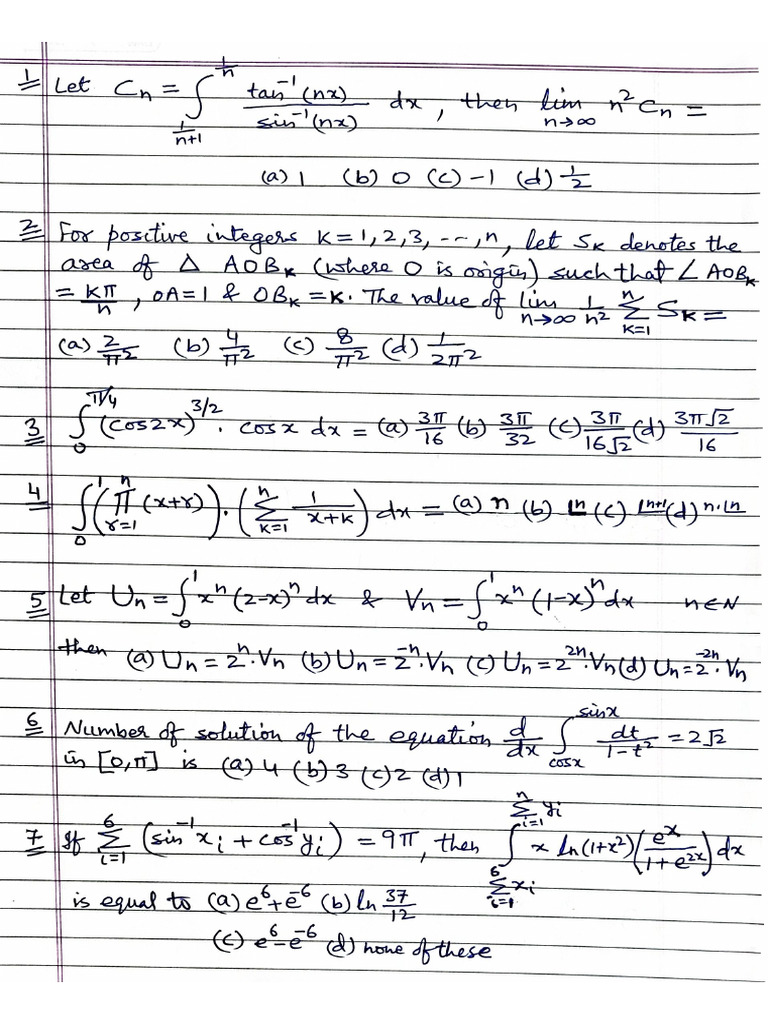 1 Let Cn = ∫_{1/(n+1)}^{1/n} tan⁻¹(nx)/sin⁻¹(nx) dx, then lim_{n→∞} n²Cn =
(a) 1 (b) 0 (c) -1 (d) 1/2
2 For positive integers K=1,2,3,---,n, let SK denotes the
area of △ AOBK (where O is origin) such that ∠AOBK
= Kπ/n, OA=1 & OBK=K. The value of lim_{n→∞} 1/n² Σ_{K=1}^{n} SK =
(a) 2/π² (b) 4/π² (c) 8/π² (d) 1/2π²
3 ∫_0^{π/4} (cos2x)^{3/2} . cosx dx = (a) 3π/16 (b) 3π/32 (c) 3π/16√2 (d) 3π√2/16
4 ∫_0^1 (∏_{r=1}^{n} (x+r)) . (Σ_{k=1}^{n} 1/(x+k)) dx = (a) n (b) ⌊n (c) ⌊n+1 (d) n.⌊n
5 Let Un = ∫_0^1 xⁿ(2-x)ⁿ dx & Vn = ∫_0^1 xⁿ(1-x)ⁿ dx n∈N
then (a) Un = 2ⁿ.Vn (b) Un = 2⁻ⁿ.Vn (c) Un = 2²ⁿ.Vn (d) Un = 2⁻²ⁿ.Vn
6 Number of solution of the equation d/dx ∫_{cosx}^{sinx} dt/(1-t²) = 2√2
in [0,π] is (a) 4 (b) 3 (c) 2 (d) 1
7 If Σ_{i=1}^{6} (sin⁻¹xi + cos⁻¹yi) = 9π, then ∫_{Σ_{i=1}^{6} xi}^{Σ_{i=1}^{n} yi} x ln(1+x²) (eˣ/(1+e²ˣ)) dx
is equal to (a) e⁶+e⁻⁶ (b) ln 37/12
(c) e⁶-e⁻⁶ (d) none of these